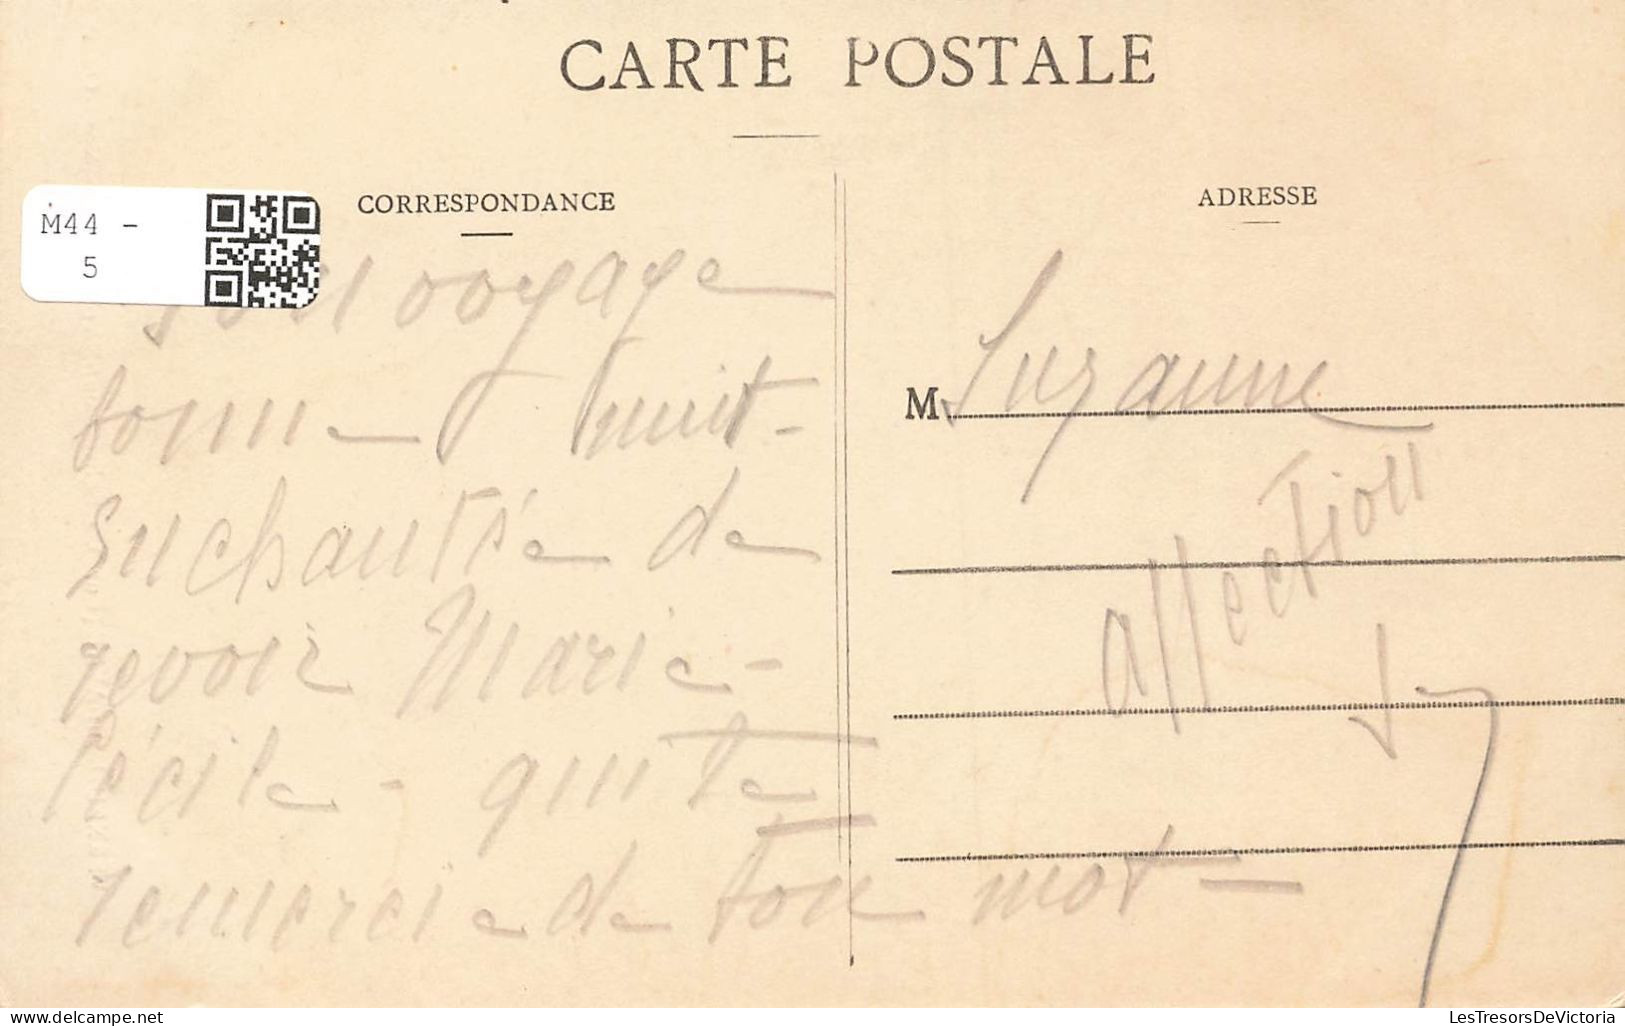 CARTE POSTALE
CORRESPONDANCE
ADRESSE
M44 -
5
Bon voyage
bonne nuit -
Enchantée de
revoir Marie -
Cécile - qui te
remercie de ton mot -
M Suzanne
affection
delcampe.net
LesTresorsDeVictoria